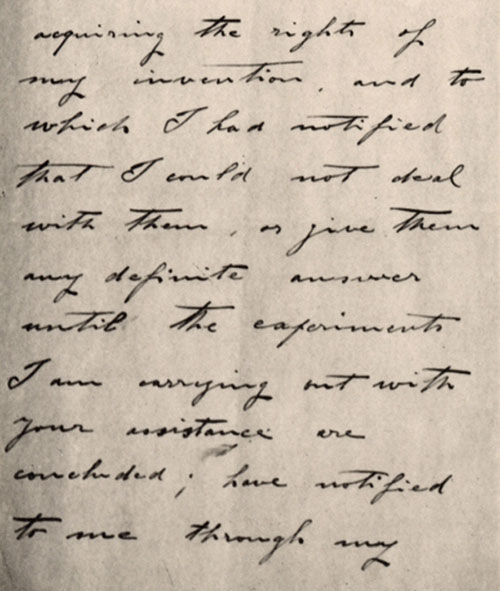 acquiring the rights of
my invention, and to
which I had notified
that I could not deal
with them, or give them
any definite answer
until the experiments
I am carrying out with
your assistance are
concluded; have notified
to me through my